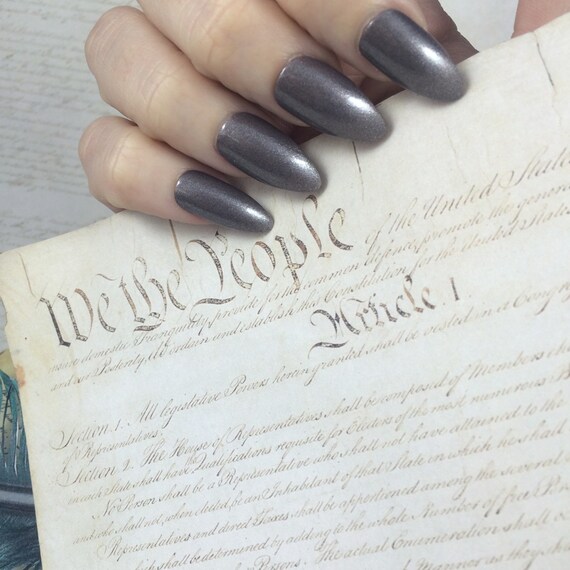 We the People of the United States
insure domestic Tranquility, provide for the common defence, promote the general
and our Posterity, do ordain and establish this Constitution for the United States
Article. I
Section. 1. All legislative Powers herein granted shall be vested in a Congress
of Representatives.
Section. 2. The House of Representatives shall be composed of Members
in each State shall have the Qualifications requisite for Electors of the most numerous
No Person shall be a Representative who shall not have attained to the
and who shall not, when elected, be an Inhabitant of that State in which he shall
Representatives and direct Taxes shall be apportioned among the several
which shall be determined by adding to the whole Number of free
Persons. The actual Enumeration shall
Manner as they